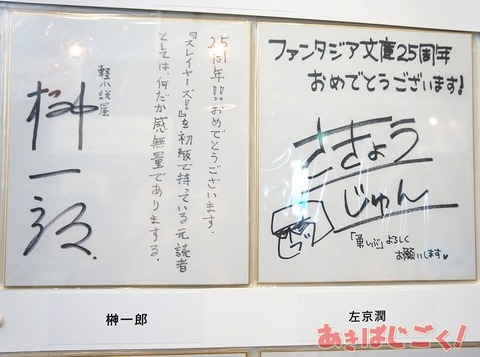 25周年!! おめでとうございます。
『スレイヤーズ!』を初版で持っている元読者
としては、何だか感無量でありまする。
軽小説屋
榊一郎
ファンタジア文庫25周年
おめでとうございます!
さきょう
じゅん
「勇しぶ」よろしく
お願いします♥
榊一郎
左京潤
あきばじごく!